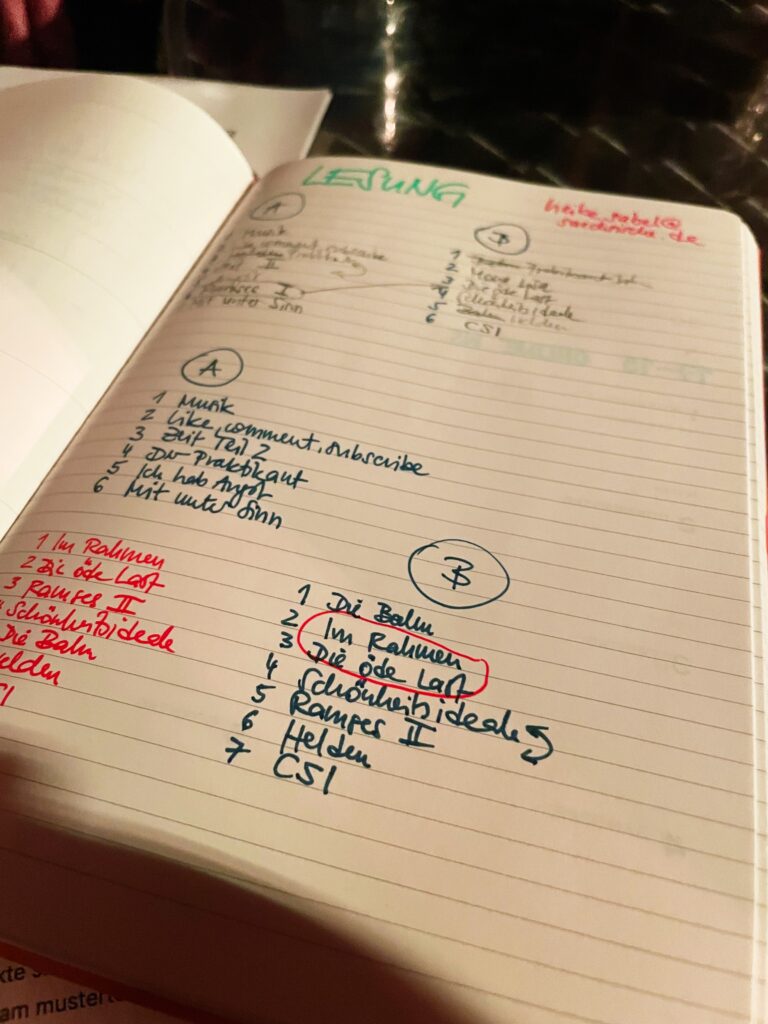 LESUNG
A
Musik
comment, subscribe
II
II
Mit unter Sinn
B
1
2
3 Die öde Last
4 Schönheitsideale
5 Helden
6 CSI
A
1 Musik
2 Like, comment, subscribe
3 Zeit Teil 2
4 Der Praktikant
5 Ich hab Angst
6 Mit unter Sinn
1 Im Rahmen
2 Die öde Last
3 Ramses II
Schönheitsideale
Die Bahn
elden
SI
B
1 Die Bahn
2 Im Rahmen
3 Die öde Last
4 Schönheitsideale
5 Ramses II
6 Helden
7 CSI
am muster